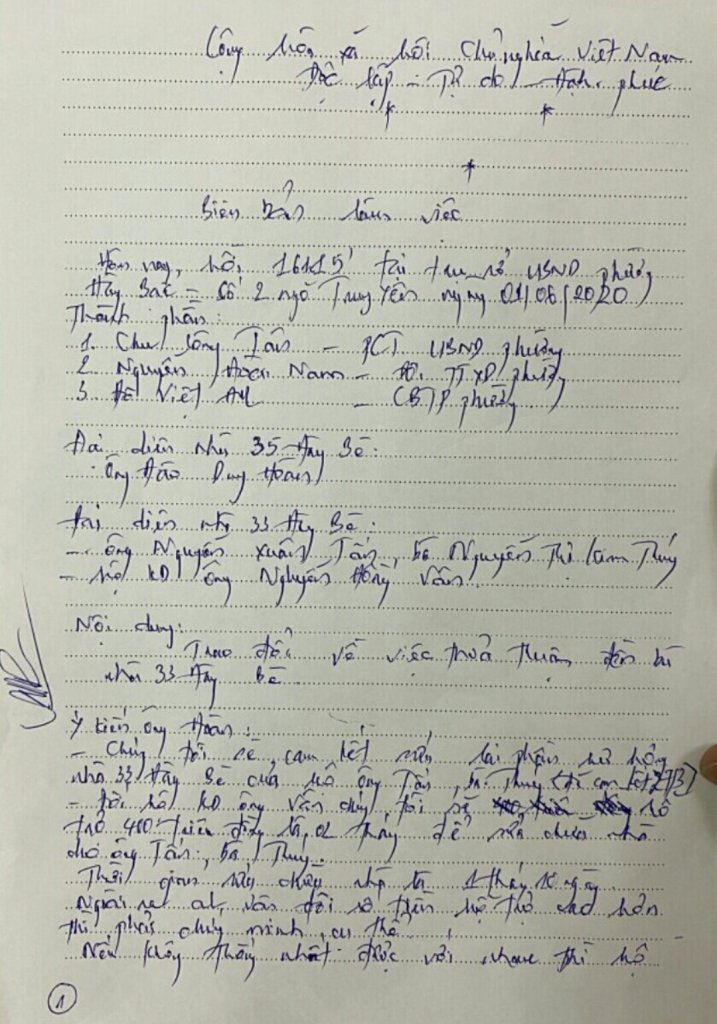 Cộng hòa xã hội Chủ nghĩa Việt Nam
Độc lập - Tự do - Hạnh phúc
Biên bản làm việc
Hôm nay, hồi 16h15' tại trụ sở UBND phường
Hàng Bạc - Số 2 ngõ Trung Yên ngày 01/06/2020
Thành phần:
1. Chu Tân - PCT UBND phường
2. Nguyễn Hoài Nam - TTXD phường
3. Viết - CBTP phường
Đại diện nhà 35 Hàng Bè:
Ông Đào Duy Hoàn
Đại diện nhà 33 Hàng Bè:
- Ông Nguyễn Xuân Tấn, bà Nguyễn Thị Kim Thúy
- hộ KD ông Nguyễn Hồng Vân
Nội dung:
Trao đổi về việc thoả thuận đền bù
nhà 33 Hàng Bè
Ý kiến ông Hoàn:
- Chúng tôi sẽ cam kết sửa lại phần hư hỏng
nhà 33 Hàng Bè của hộ ông Tấn, bà Thúy
- Đối hộ KD ông Vân tôi sẽ hỗ
trợ triệu đồng để sửa chữa nhà
cho ông Tấn, bà Thúy.
Thời gian sửa chữa 1 tháng 10 ngày
Ngoài ra Vân đòi số tiền hỗ trợ cao hơn
thì phải chứng minh cụ thể
Nếu không thống nhất được với nhau thì hộ
1